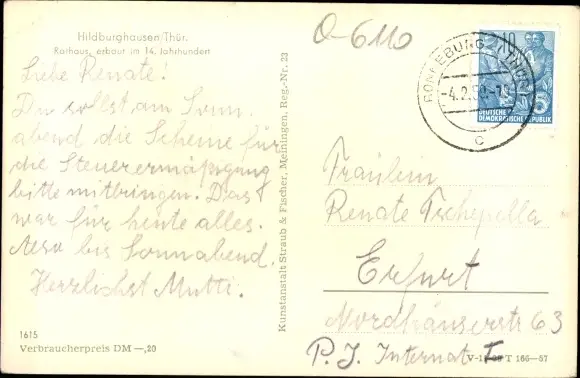 Hildburghausen/Thür.
Rathaus, erbaut im 14. Jahrhundert
Liebe Renate!
Du sollst am Sonn-
abend die Scheine für
die Steuerermäßigung
bitte mitbringen. Das
war für heute alles.
Also bis Sonnabend.
Herzlichst Mutti.
1615
Verbraucherpreis DM —,20
Kunstanstalt Straub & Fischer, Meiningen, Reg.-Nr. 23
O-610
RONNEBURG (THÜR)
-4.2.58
c
10
DEUTSCHE
DEMOKRATISCHE REPUBLIK
Fräulein
Renate Tschepella
Erfurt
Nordhäuserstr 63
P. J. Internat I
T 166—57